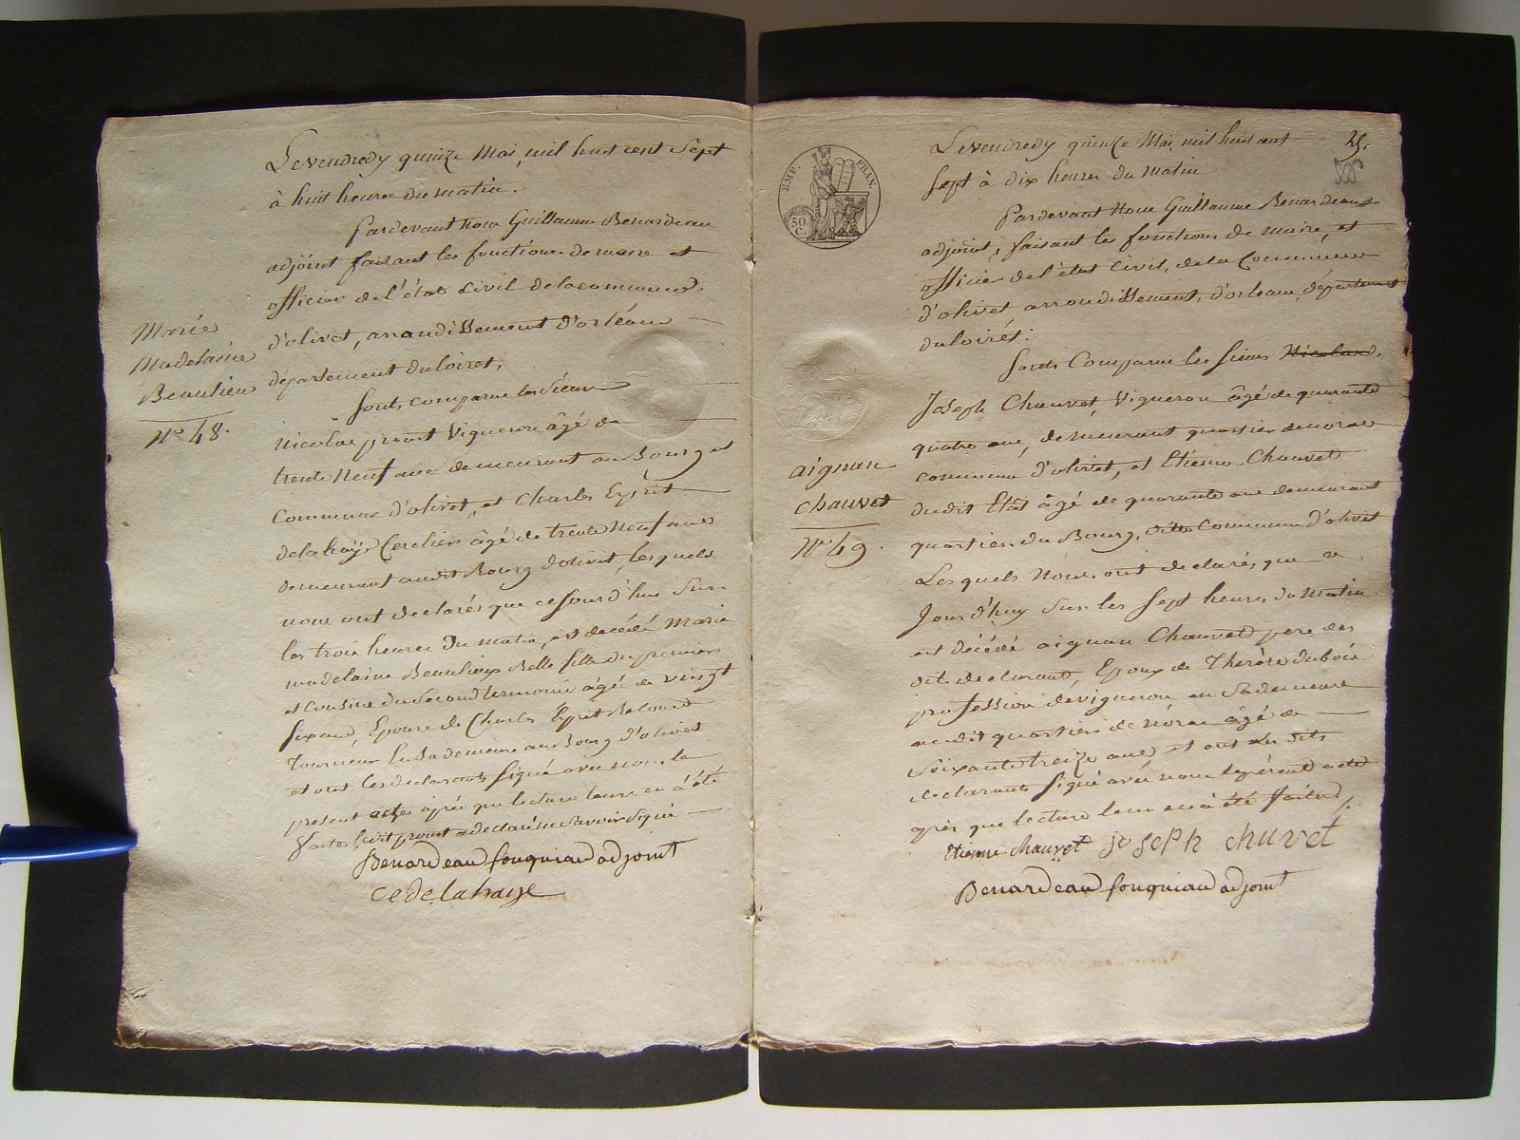 Le vendredy quinze Mai, mil huit cent Sept
à huit heures du matin.
Pardevant nous Guillaume Benardeau
adjoint faisant les fonctions de maire et
officier de l'état Civil de la commune
d'olivet, arrondissement d'orléans
département du loiret,
Marie
Madelaine
Beaulieu
N° 48.
Sont comparus les Sieurs
Nicolas prevost Vigneron âgé de
trente Neuf ans demeurant au Bourg et
Commune d'olivet, et Charles Esprit
delahaye Cerclier âgé de trente Neuf ans
demeurant audit Bourg d'olivet, lesquels
nous ont declarés que ce Jourd'hui Sur
les trois heures du matin, est decédé Marie
madelaine Beaulieu Belle fille du premier
et Cousine du Second âgé de vingt
Six ans, Epouse de Charles Esprit
Tourneur En Sa demeure au Bourg d'olivet
et ont les declarants Signé avec nous le
present acte après que lecture leur en a été
faite, ledit prevost a declaré ne Savoir Signé
Benardeau fouqueau adjoint
ce delahaye
25.
EMP. FRAN.
50 C.
Le vendredy quinze Mai, mil huit cent
Sept à dix heures du matin
Pardevant Nous Guillaume Benardeau
adjoint, faisant les fonctions de maire, et
officier de l'état Civil, de la Commune
d'olivet, arrondissement, d'orleans, département
du loiret:
Sont Comparus les Sieurs Nicolas
Joseph Chauvet, Vigneron âgé de quarante
quatre ans, demeurant quartier de
commune d'olivet, et Etienne Chauvet
dudit Etat âgé de quarante ans demeurant
quartier du Bourg, dite Commune d'olivet
aignan
chauvet
N° 49.
Lesquels Nous ont declaré, que ce
Jourd'huy Sur les Sept heures du Matin
est décédé aignan Chauvet pere des
dits declarants, Epoux de Therèse dubois
profession de vigneron, en Sa demeure
audit quartier de âgé de
Soixante treize ans et ont les dits
declarants Signé avec nous le présent acte
après que lecture leur en a été faite
etienne chauvet joseph chuvet
Benardeau fouqueau adjoint